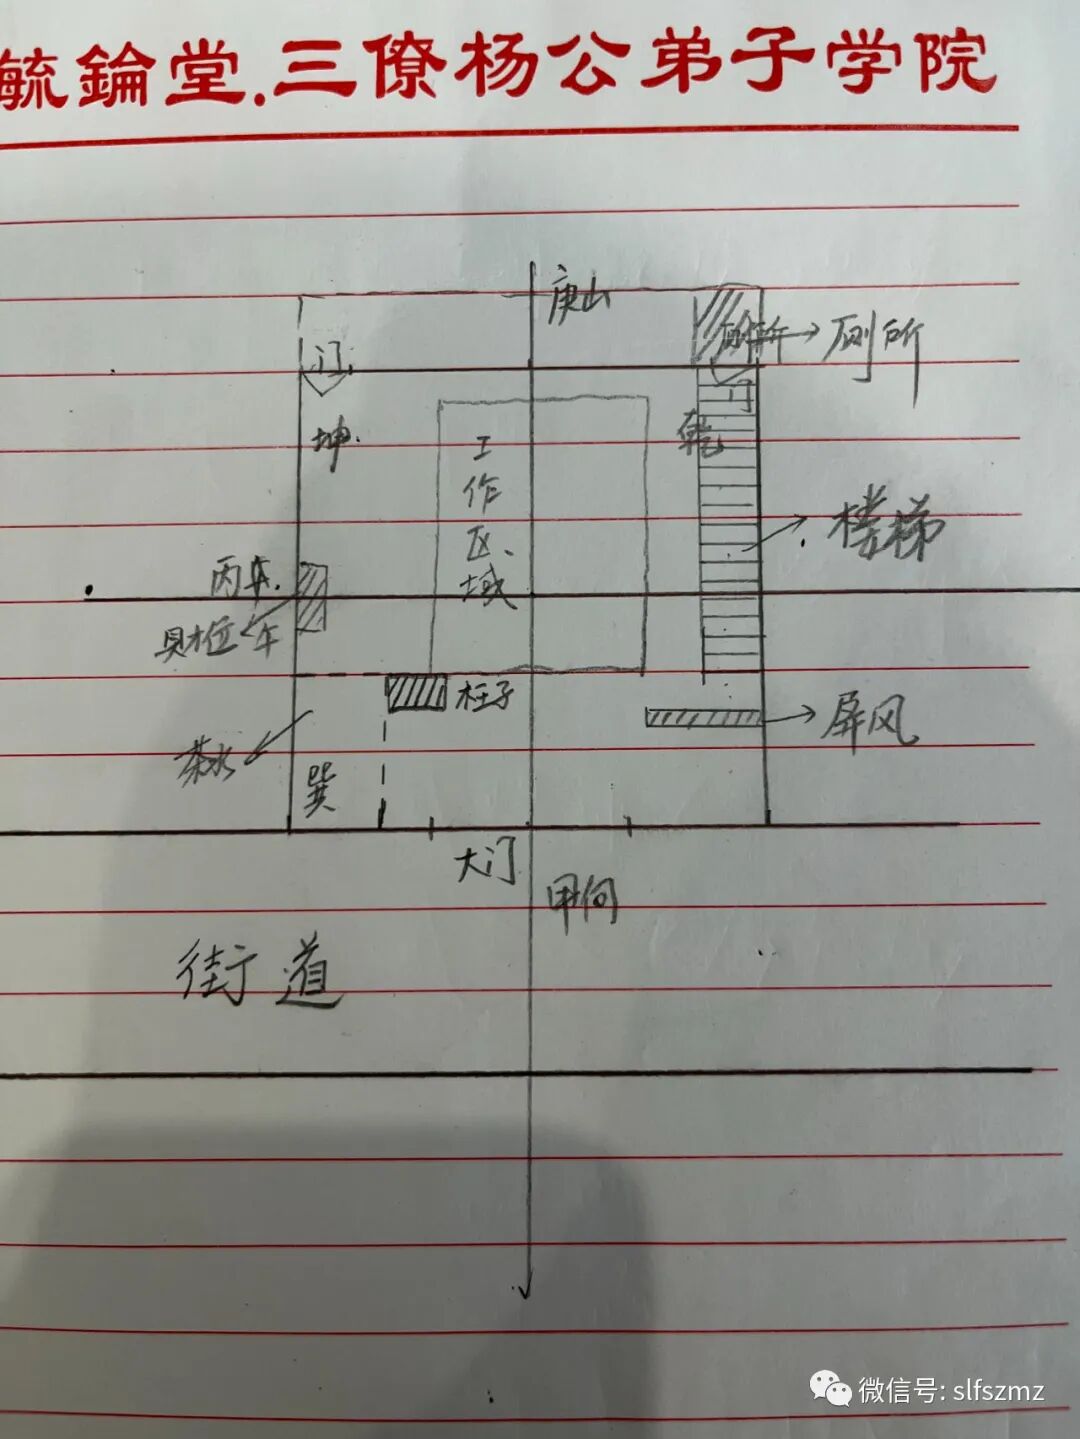 毓錀堂.三僚杨公弟子学院
庚山
厕所
厕所
门
门
坤
乾
工作区域
楼梯
丙
财位
午
柱子
屏风
茶水
巽
大门
甲向
街道
微信号: slfszmz